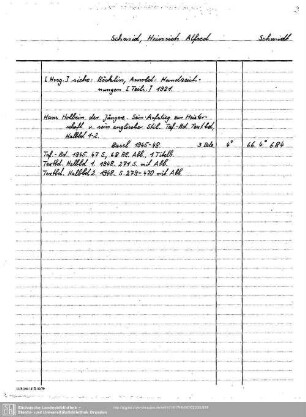 Schmid, Heinrich Alfred Schmidt
[Hrsg.] siehe: Böcklin, Arnold: Handzeich-
nungen [Teils.] 1921.
Hans Holbein der Jüngere. Sein Aufstieg zur Meister-
schaft u. sein englischer Stil. Taf.-Bd. Textbd,
Halbbd 1-2.
Basel 1945-48. 3 Bde 4° 66. 4° 684
Taf.-Bd. 1945. 47 S., 68 Bl. Abb., 1 Titelb.
Textbd. Halbbd 1. 1948. 271 S. mit Abb.
Textbd. Halbbd 2. 1948. S. 273-470 mit Abb.
Sächsische Landesbibliothek -
Staats- und Universitätsbibliothek Dresden